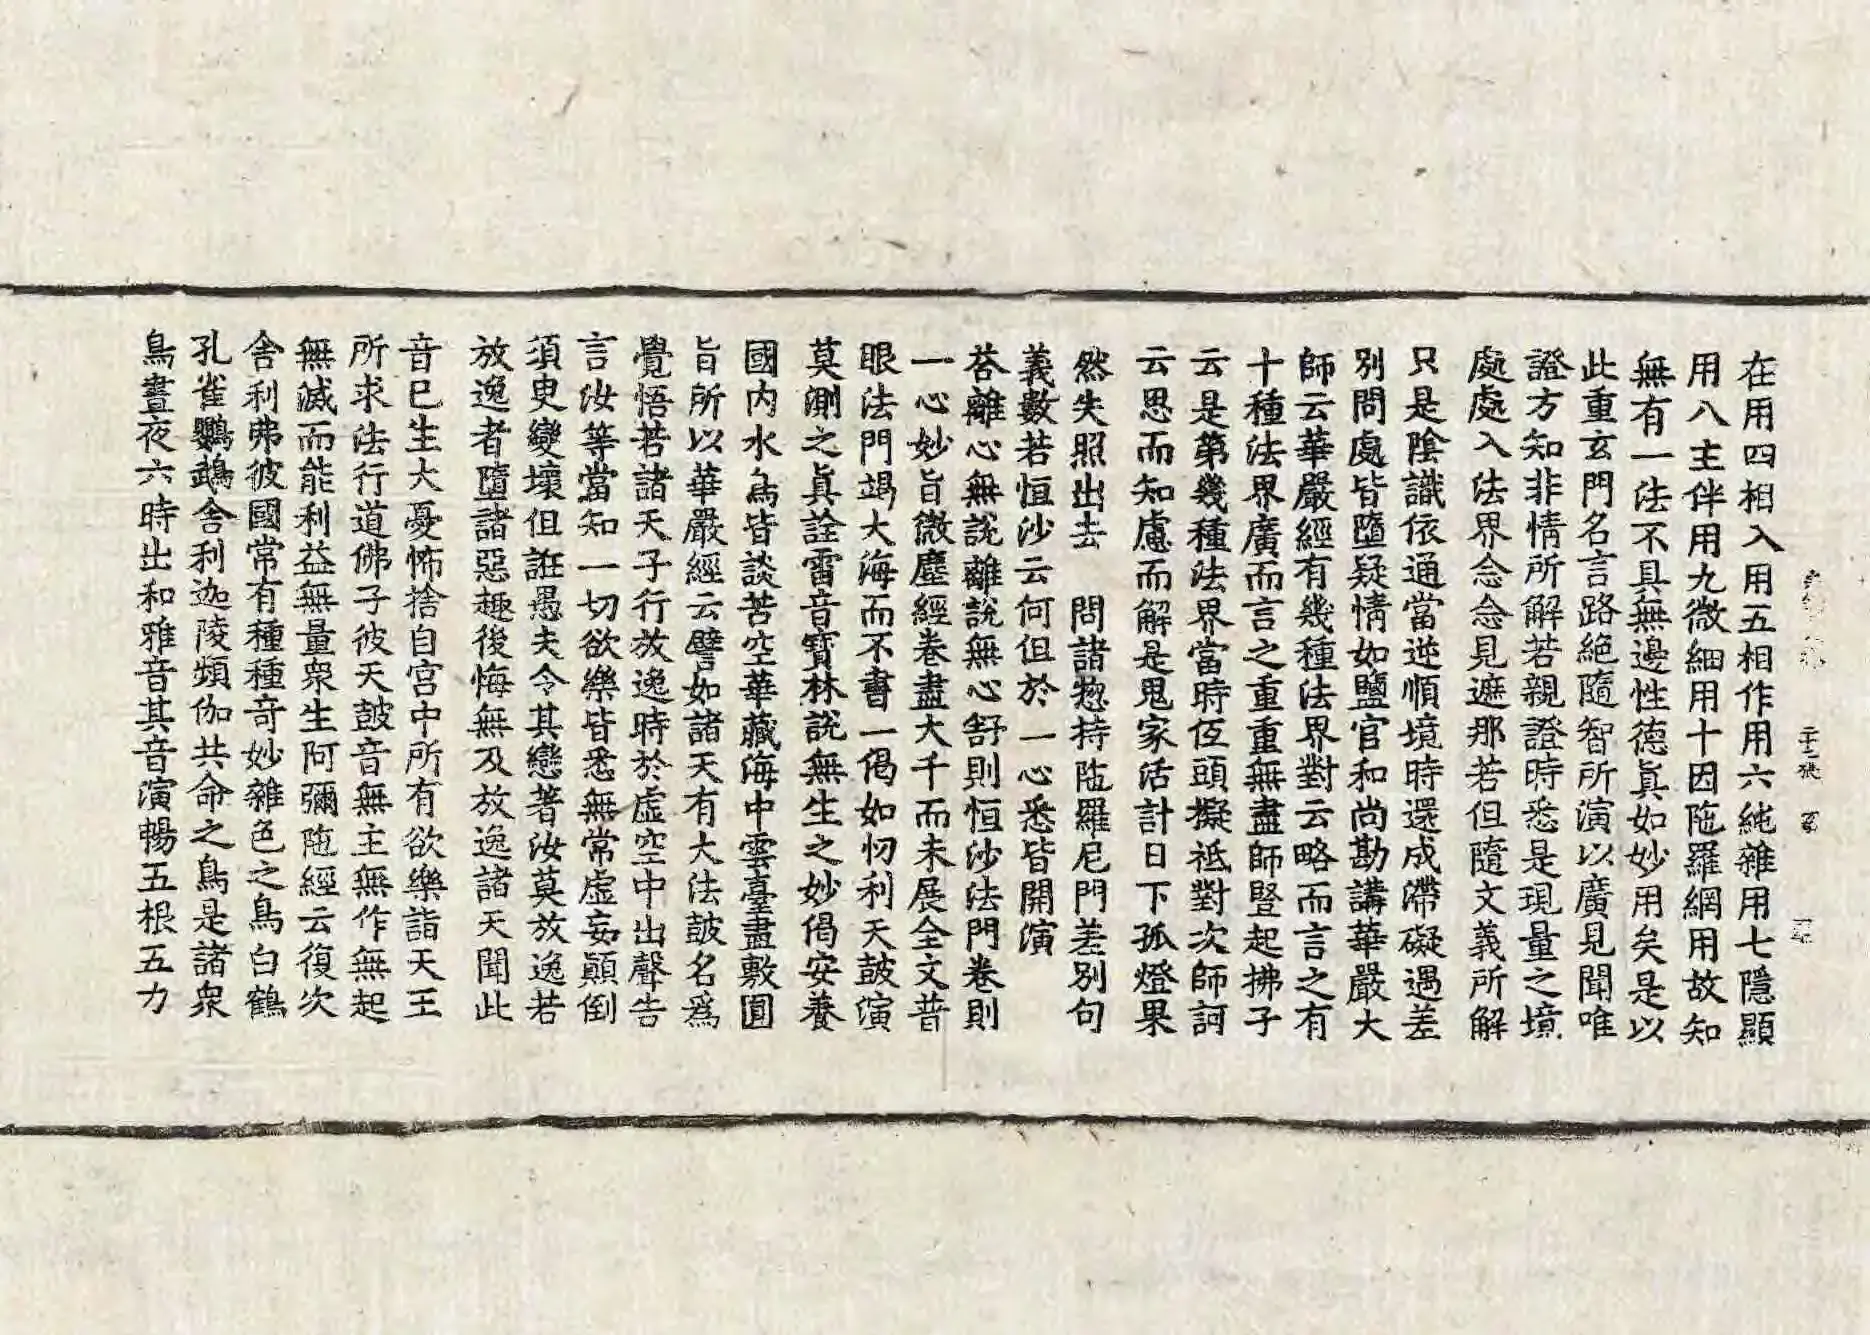 在用四相入用五相作用六純雜用七隱顯
用八主伴用九微細用十因陁羅網用故知
無有一法不具無邊性德眞如妙用矣是以
此重玄門名言路絕隨智所演以廣見聞唯
證方知非情所解若親證時悉是現量之境
處處入法界念念見遮那若但隨文義所解
只是陰識依通當逆順境時還成滯礙遇差
別問處皆墮疑情如鹽官和尚勘講華嚴大
師云華嚴經有幾種法界對云略而言之有
十種法界廣而言之重重無盡師竪起拂子
云是第幾種法界當時伍頭擬祗對次師訶
云思而知慮而解是鬼家活計日下孤燈果
然失照出去　問諸惣持陁羅尼門差別句
義數若恒沙云何但於一心悉皆開演
荅離心無說離說無心舒則恒沙法門卷則
一心妙旨微塵經卷盡大千而未展全文普
眼法門竭大海而不書一偈如忉利天鼓演
莫測之眞詮雷音寶林說無生之妙偈安養
國內水鳥皆談苦空華藏海中雲臺盡敷圓
旨所以華嚴經云譬如諸天有大法鼓名爲
覺悟若諸天子行放逸時於虛空中出聲告
言汝等當知一切欲樂皆悉無常虛妄顚倒
須臾變壞但誑愚夫令其戀著汝莫放逸若
放逸者墮諸惡趣後悔無及放逸諸天聞此
音已生大憂怖捨自宮中所有欲樂詣天王
所求法行道佛子彼天鼓音無主無作無起
無滅而能利益無量衆生阿彌陁經云復次
舍利弗彼國常有種種奇妙雜色之鳥白鶴
孔雀鸚鵡舍利迦陵頻伽共命之鳥是諸衆
鳥晝夜六時出和雅音其音演暢五根五力